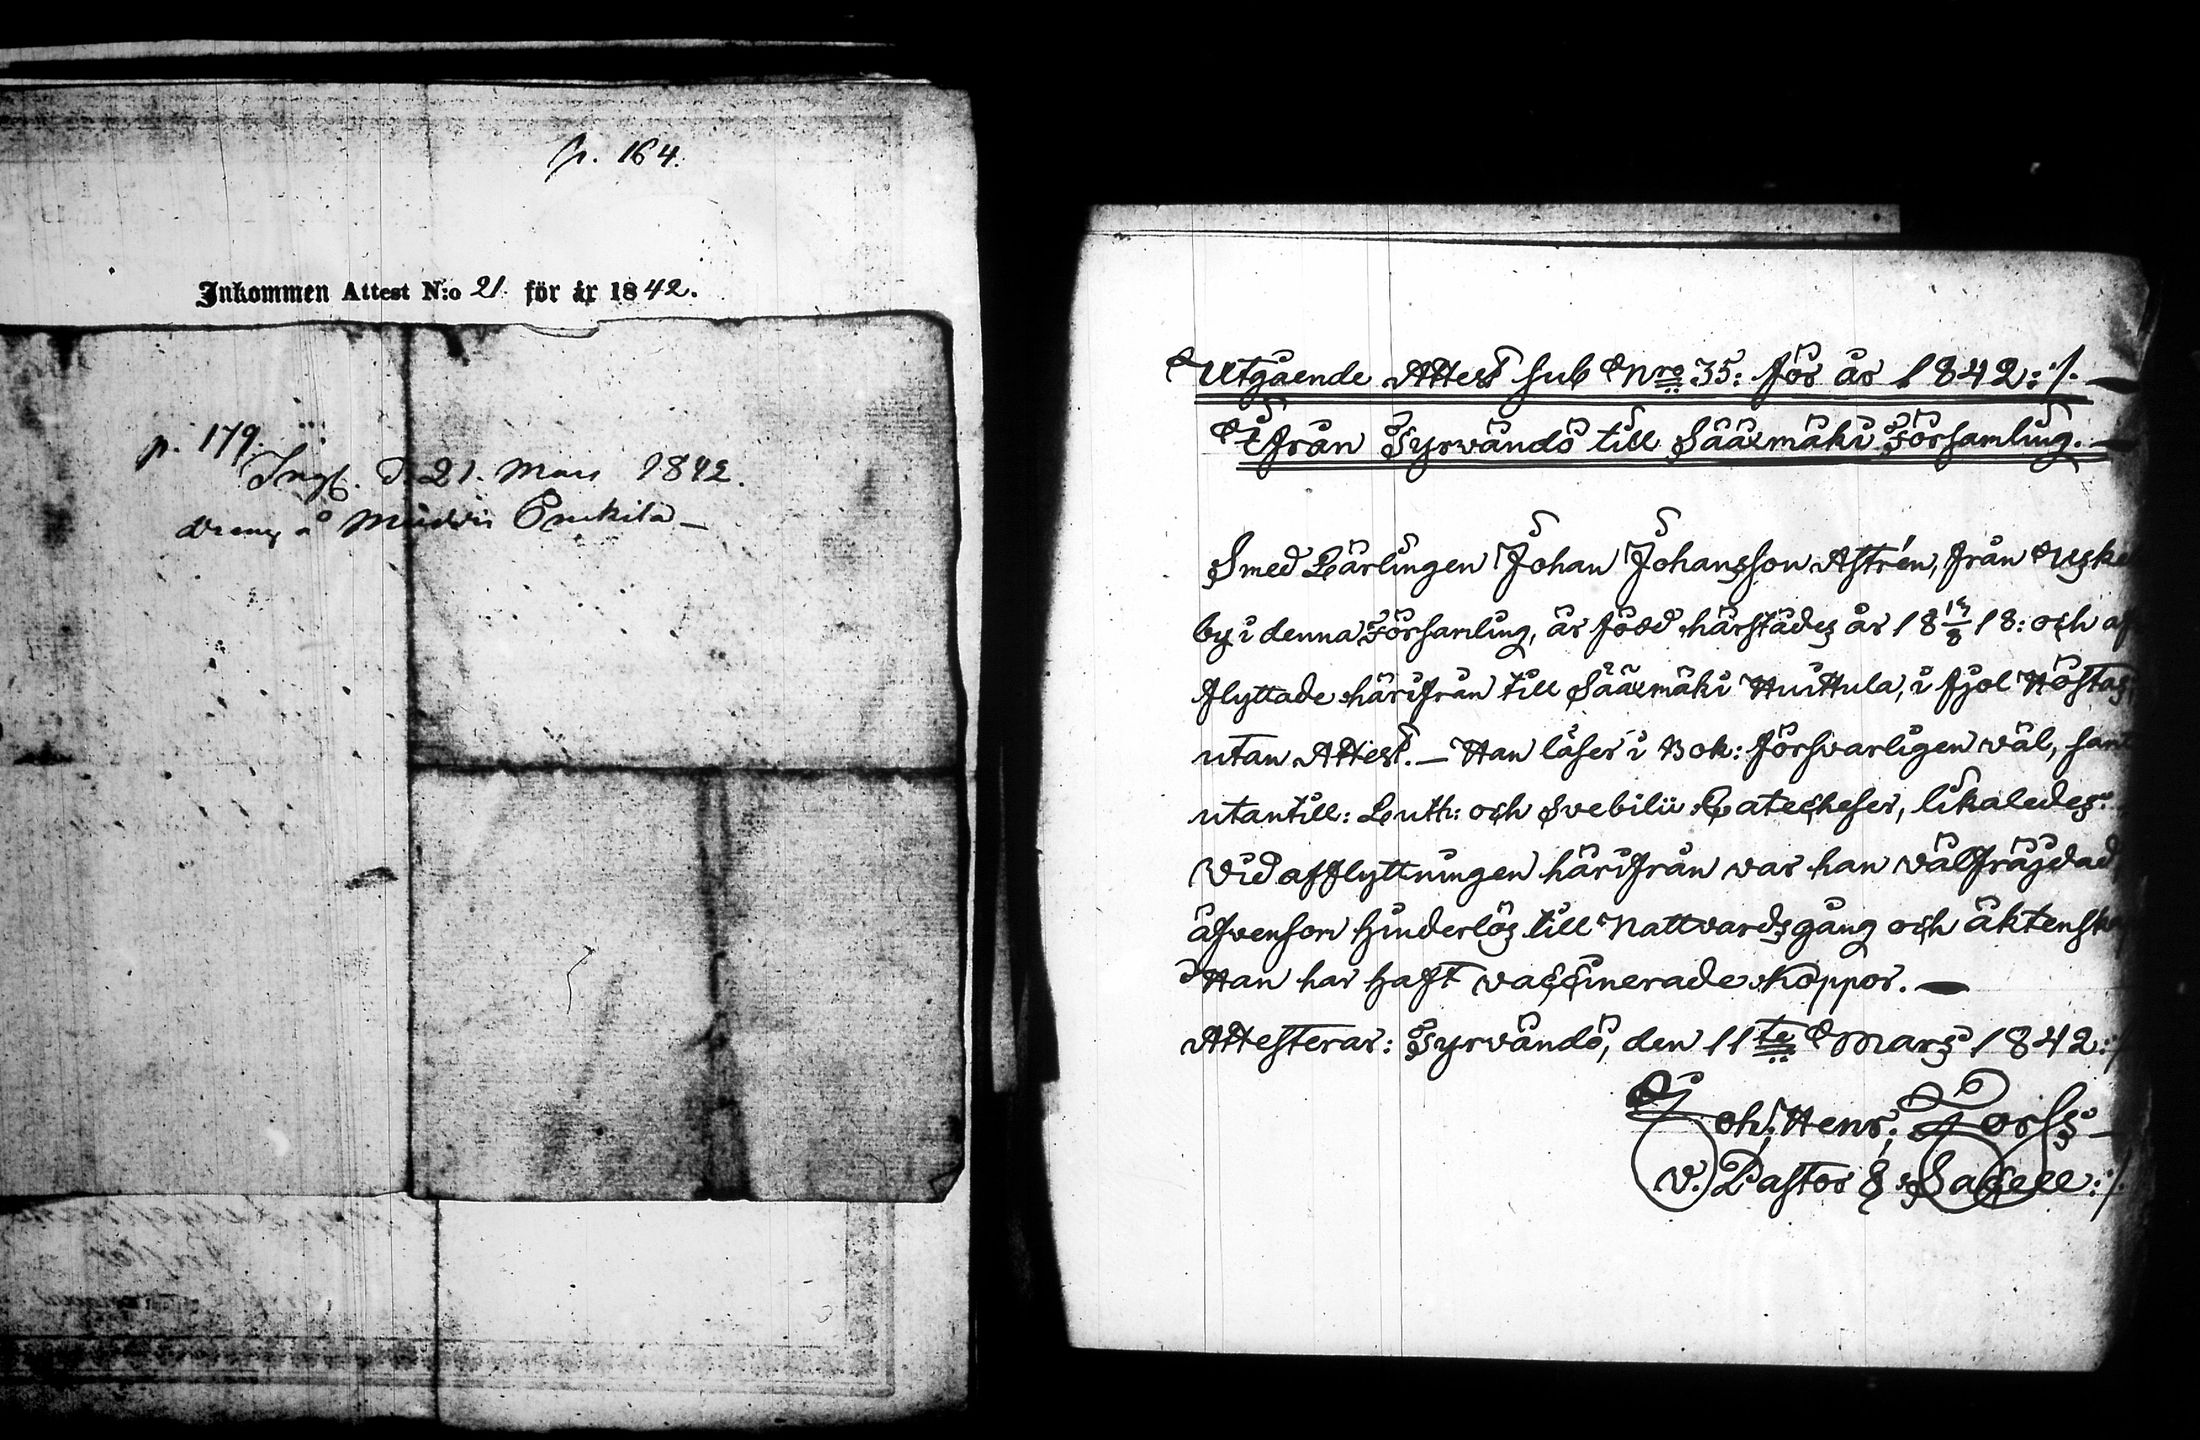 p. 164.
Inkommen Attest N:o 21 för år 1842.
p. 179.
Ingf. d. 21. Mars 1842.
Dreng å
Utgående Attest sub Nro 35: för år 1842:/.
Ifrån Tyrvändö till Sääxmäki Församling.
Smed Lärlingen Johan Johansson Astrén, från Uske
by i denna Församling, är född härstädes år 18 18: och af
flyttade härifrån till Sääxmäki Huittula, i fjol Höstas,
utan Attest. — Han läser i Bok: försvarligen wäl, samt
utantill: Luth: och Svebilii Catecheser, likaledes:
Vid afflyttningen härifrån war han wälfräjdad,
äfvensom hinderlös till Nattvardsgång och äktenskap
Han har haft vaccinerade Koppor. —
Attesterar: Tyrvändö, den 11te Mars 1842:/.
Joh: Henr: Forss —
v. Pastor & Sacell:/.